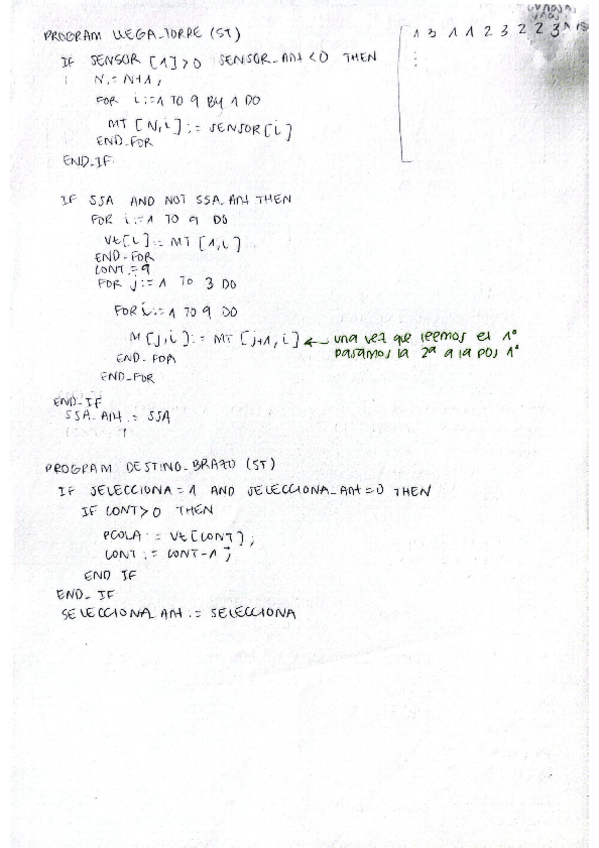 PROGRAM LLEGA_TORRE (ST)
1 3 1 1 2 3 2 2 3
IF SENSOR [1]>0 SENSOR_Ant<0 THEN
N:=N+1;
FOR i:=1 TO 9 BY 1 DO
MT [N,i] := SENSOR[i]
END_FOR
END_IF
IF SSA AND NOT SSA_Ant THEN
FOR i:=1 TO 9 DO
Vt[i] := MT [1,i]
END_FOR
CONT:=9
FOR j:=1 TO 3 DO
FOR i:=1 TO 9 DO
M[j,i] := MT [j+1,i] ← una vez que leemos el 1º
pasamos la 2ª a la pos 1ª
END_FOR
END_FOR
END_IF
SSA_Ant := SSA
PROGRAM DESTINO_BRAZO (ST)
IF SELECCIONA=1 AND SELECCIONA_Ant=0 THEN
IF CONT>0 THEN
PCOLA := Vt[CONT];
CONT := CONT-1;
END IF
END_IF
SELECCIONA_Ant := SELECCIONA